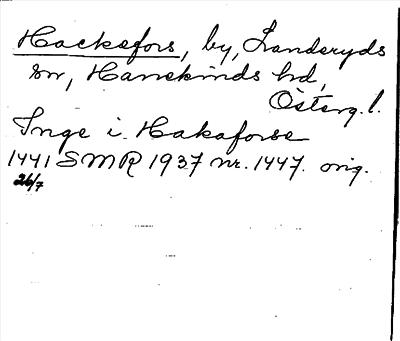 Hackefors, by, Landeryds
sn, Hanekinds hd,
Österg. l.
Inge i Hakaforse
1441 SMR 1937 nr. 1447. orig.
26/7